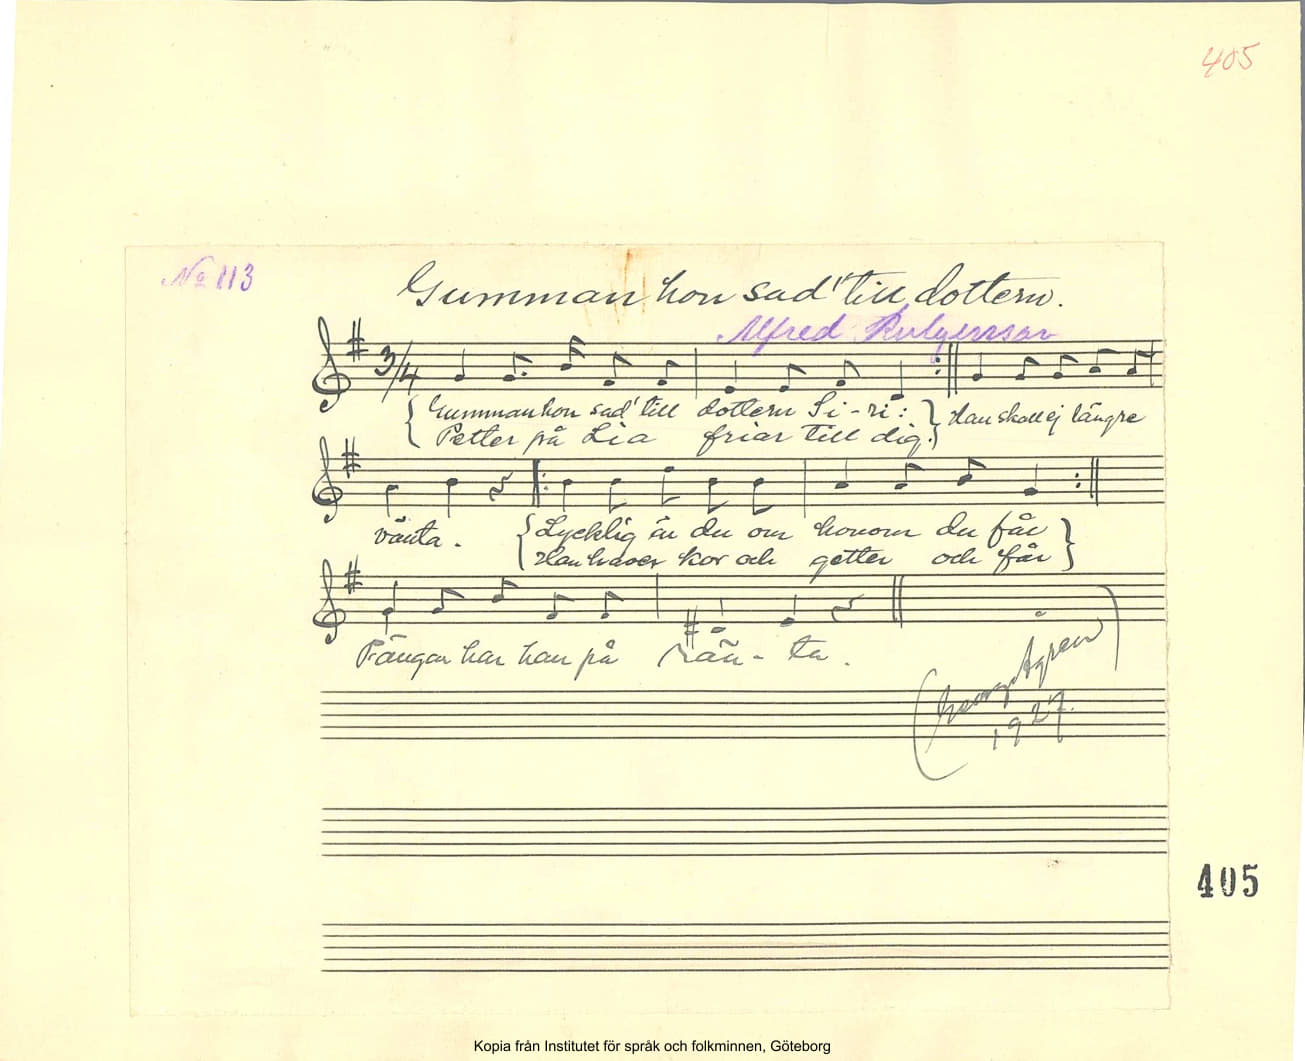 405
No 113
Gumman hon sad' till dottern.
Alfred
3/4
Gumman hon sad' till dottern Si-ri: Han skall ej längre
Petter på Lia friar till dig.
vänta. Lycklig är du om honom du får
Han haver kor och getter och får
Pängar har han på rän-ta.
Ågren
1927.
405
Kopia från Institutet för språk och folkminnen, Göteborg